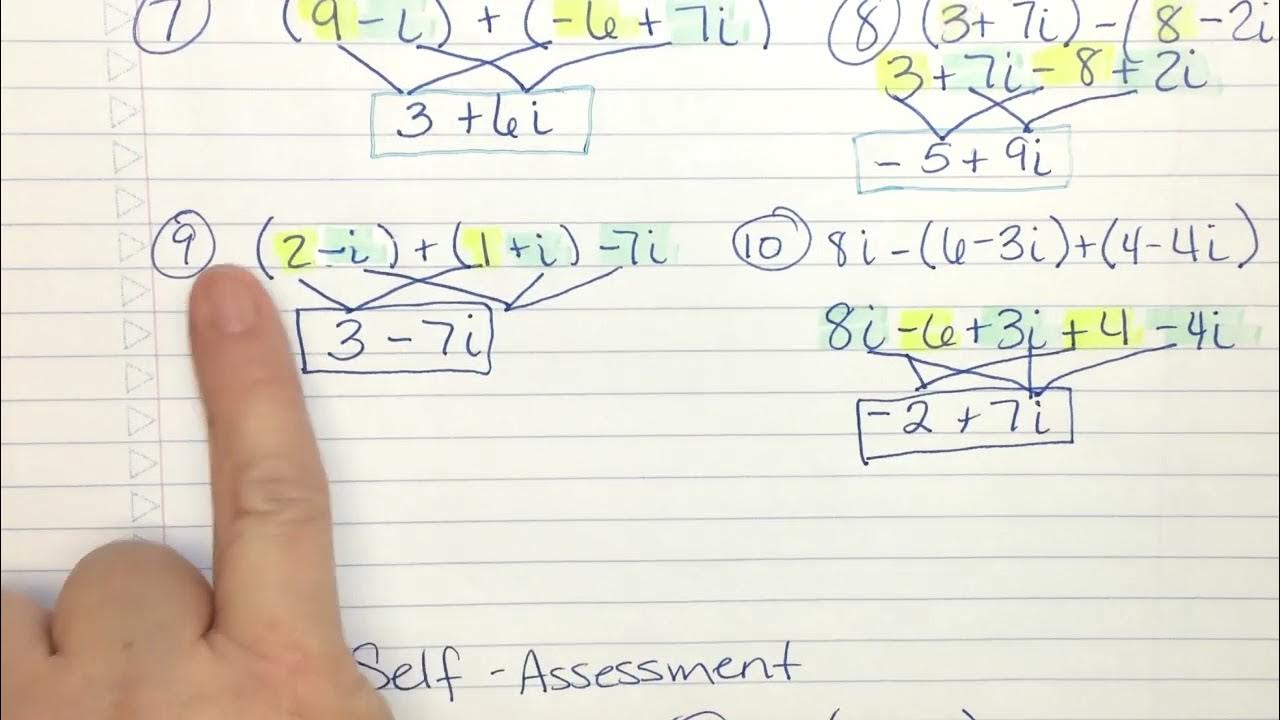 7 (9 - i) + (-6 + 7i)
3 + 6i
8 (3 + 7i) - (8 - 2i
3 + 7i - 8 + 2i
- 5 + 9i
9 (2 - i) + (1 + i) - 7i
3 - 7i
10 8i - (6 - 3i) + (4 - 4i)
8i - 6 + 3i + 4 - 4i
- 2 + 7i
Self - Assessment